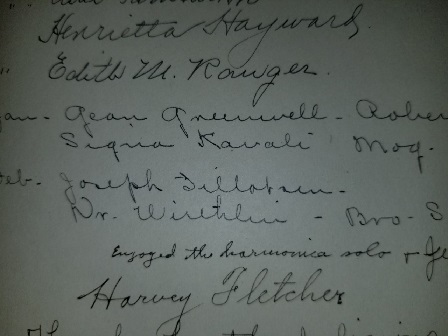 " Henrietta Hayward.
" Edith M. Ranger.
Jan- Jean Greenwell - Rober
Signa Kavali Moq.
Feb- Joseph Tillotson -
Dr. Wirthlin - Bro- S
Enjoyed the harmonica solo + Je
Harvey Fletcher